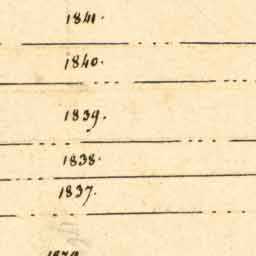 1841.
1840.
1839.
1838.
1837.